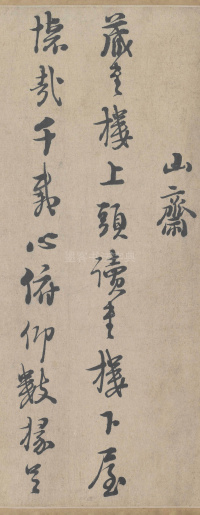 山齋
藏書樓上頭讀書樓下屋
懷哉千載心俯仰數椽足